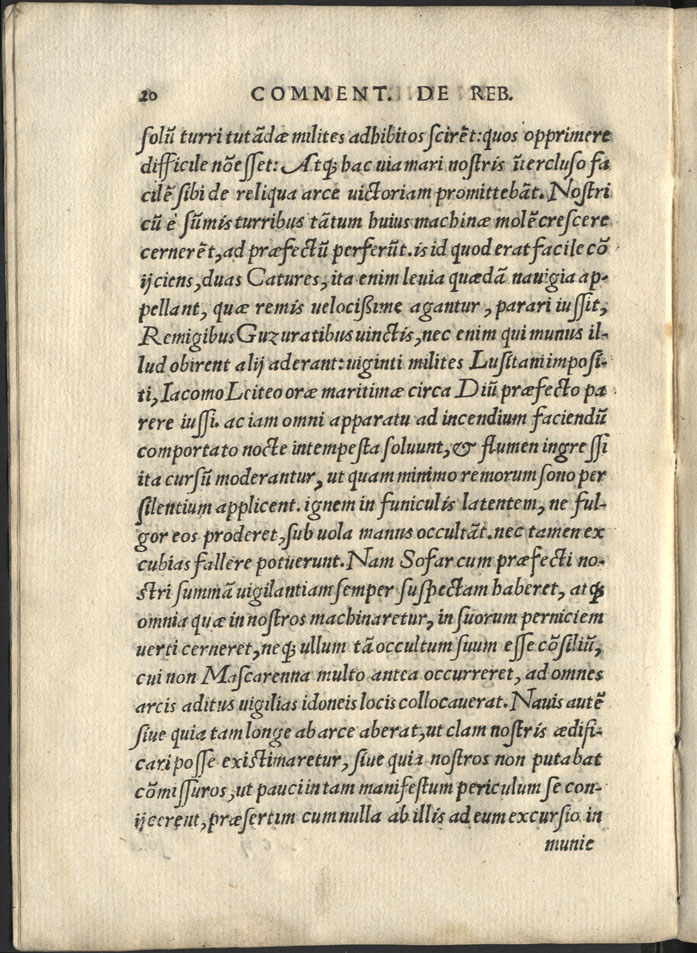 20 COMMENT. DE REB.
ſolũ turri tutãdæ milites adhibitos ſcirẽt: quos opprimere
difficile nõ eſſet: Atq; hac uia mari noſtris ĩtercluſo fa
cilẽ ſibi de reliqua arce uictoriam promittebãt. Noſtri
cũ è sũmis turribus tãtum huius machinæ molẽ creſcere
cernerẽt, ad præfectũ perferũt. is id quod erat facile cõ
ijciens, duas Catures, ita enim leuia quædã nauigia ap-
pellant, quæ remis uelocißime agantur, parari iuſſit,
Remigibus Guzuratibus uinctis, nec enim qui munus il-
lud obirent alij aderant: uiginti milites Luſitani impoſi-
ti, Iacomo Leiteo oræ maritimæ circa Diũ præfecto pa
rere iuſſi. ac iam omni apparatu ad incendium faciendũ
comportato nocte intempeſta ſoluunt, & flumen ingreſſi
ita curſũ moderantur, ut quam minimo remorum ſono per
ſilentium applicent. ignem in funiculis latentem, ne ful-
gor eos proderet, ſub uola manus occultãt. nec tamen ex
cubias fallere potuerunt. Nam Sofar cum præfecti no-
ſtri ſummã uigilantiam ſemper ſuſpectam haberet, atq;
omnia quæ in noſtros machinaretur, in ſuorum perniciem
uerti cerneret, neq; ullum tã occultum ſuum eſſe cõſiliũ,
cui non Maſcarenna multo antea occurreret, ad omnes
arcis aditus uigilias idoneis locis collocauerat. Nauis autẽ
ſiue quia tam longe ab arce aberat, ut clam noſtris ædifi-
cari poſſe exiſtimaretur, ſiue quia noſtros non putabat
cõmiſſuros, ut pauci in tam manifeſtum periculum ſe con-
ijcerent, præſertim cum nulla ab illis ad eum excurſio in
munie